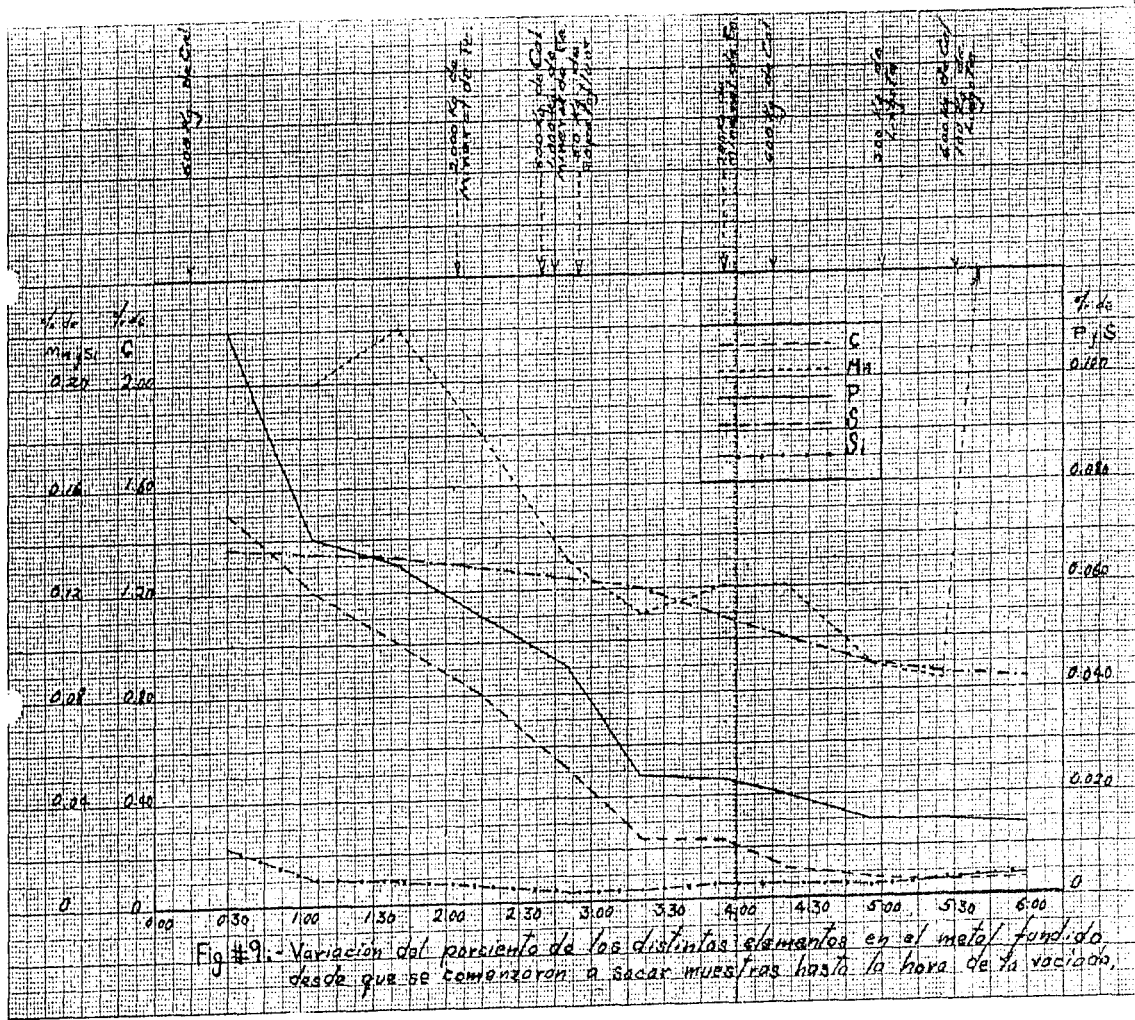 600 Kg. de Cal
2000 Kg de
mineral de Fe
600 Kg de Cal
1,000 Kg de
mineral de Fe
50 Kg de
mineral de Fe
600 Kg de Cal
500 Kg de
600 Kg de Cal
700 Kg de
% de
Mn y Si
% de
C
% de
P y S
0.20 2.00
0.16 1.60
0.12 1.20
0.08 0.80
0.04 0.40
0 0
0.100
0.080
0.060
0.040
0.020
0
C
Mn
P
S
Si
0:00 0:30 1:00 1:30 2:00 2:30 3:00 3:30 4:00 4:30 5:00 5:30 6:00
Fig #9.- Variación del porciento de los distintos elementos en el metal fundido,
desde que se comenzaron a sacar muestras hasta la hora de la vaciada.